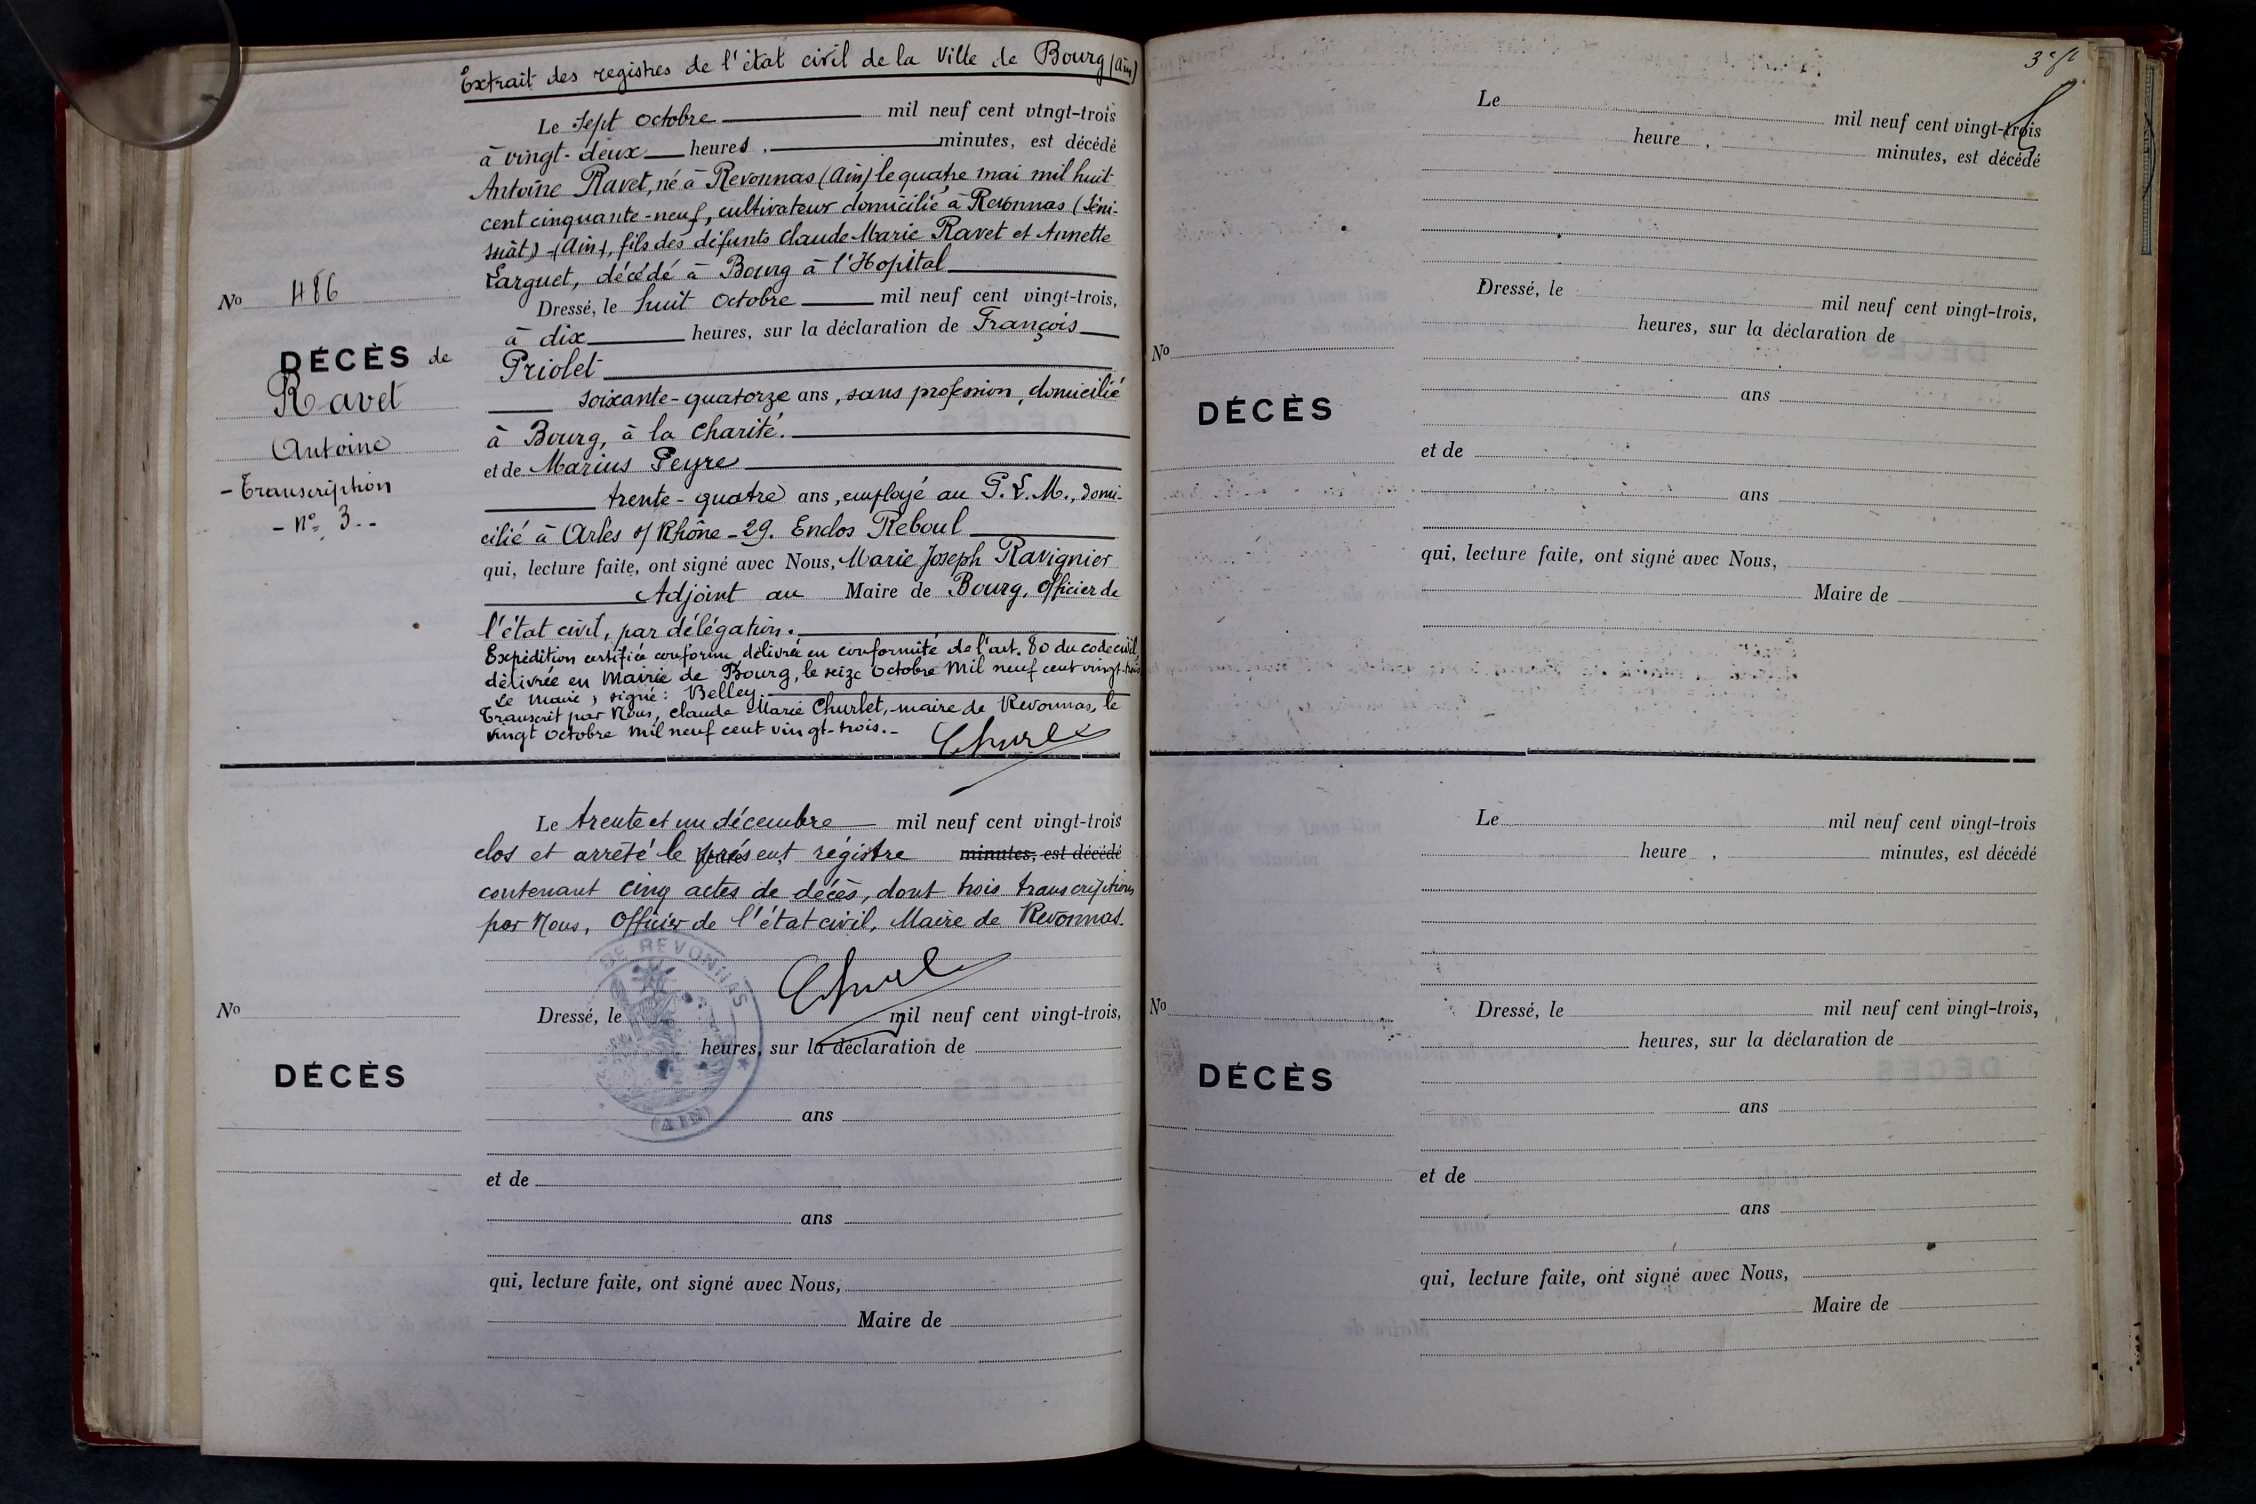 Extrait des registres de l'état civil de la Ville de Bourg (Ain)
Le sept octobre mil neuf cent vingt-trois
à vingt-deux heures, minutes, est décédé
Antoine Ravet, né à Revonnas (Ain) le quatre mai mil huit
cent cinquante-neuf, cultivateur domicilié à Revonnas (Séni-
suat) (Ain), fils des défunts Claude-Marie Ravet et Annette
Larguet, décédé à Bourg à l'Hopital
No 486
Dressé, le huit octobre mil neuf cent vingt-trois,
à dix heures, sur la déclaration de François
DÉCÈS de
Priolet
Ravet
soixante-quatorze ans, sans profession, domicilié
à Bourg, à la Charité.
Antoine
et de Marius Peyre
- Transcription
trente-quatre ans, employé au P.L.M., domi-
- No 3 -
cilié à Arles s/ Rhône - 29. Enclos Reboul
qui, lecture faite, ont signé avec Nous, Marie Joseph Ravignier
Adjoint au Maire de Bourg, Officier de
l'état civil, par délégation.
Expédition certifiée conforme délivrée en conformité de l'art. 80 du code civil,
délivrée en Mairie de Bourg, le seize octobre mil neuf cent vingt-trois
Le maire, signé: Belley.
Transcrit par Nous, Claude Marie Churlet, maire de Revonnas, le
vingt octobre mil neuf cent vingt-trois.-
Le trente et un décembre mil neuf cent vingt-trois
clos et arrêté le présent régistre heures minutes, est décédé
contenant cinq actes de décès, dont trois transcriptions
par Nous, Officier de l'état civil, Maire de Revonnas.
DE REVONNAS
(AIN)
No
Dressé, le mil neuf cent vingt-trois,
heures, sur la déclaration de
DÉCÈS
ans
et de
ans
qui, lecture faite, ont signé avec Nous,
Maire de
Le mil neuf cent vingt-trois
heure , minutes, est décédé
Dressé, le mil neuf cent vingt-trois,
heures, sur la déclaration de
No
DÉCÈS
ans
et de
ans
qui, lecture faite, ont signé avec Nous,
Maire de
Le mil neuf cent vingt-trois
heure , minutes, est décédé
No
Dressé, le mil neuf cent vingt-trois,
heures, sur la déclaration de
DÉCÈS
ans
et de
ans
qui, lecture faite, ont signé avec Nous,
Maire de